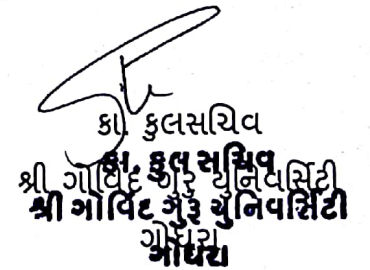 કા. કુલસચિવ
કા. કુલ સચિવ
શ્રી ગોવિંદ ગુરુ યુનિવર્સિટી
શ્રી ગોવિંદ ગુરૂ યુનિવર્સિટી
ગોધરા
ગોધરા